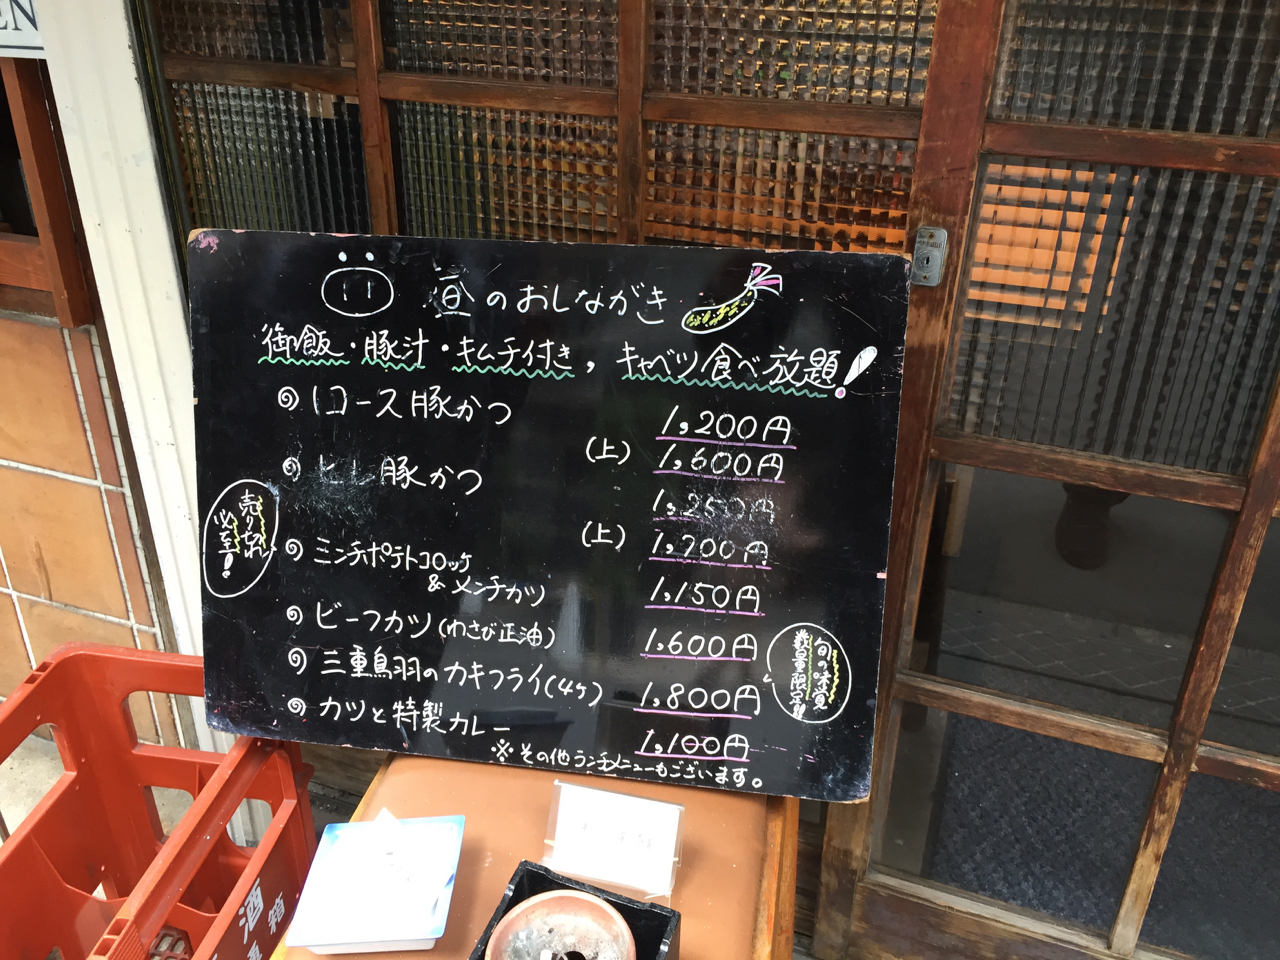 EN
昼のおしながき
御飯・豚汁・キムチ付き，キャベツ食べ放題！
ロース豚かつ 1,200円
(上) 1,600円
ヒレ豚かつ 1,250円
(上) 1,700円
売り切れ
必至！
ミンチポテトコロッケ
& メンチカツ 1,150円
ビーフカツ(わさび正油) 1,600円
三重鳥羽のカキフライ(4ヶ) 1,800円
旬の味覚
数量限定!!
カツと特製カレー 1,100円
※その他ランチメニューもございます。
酒
箱